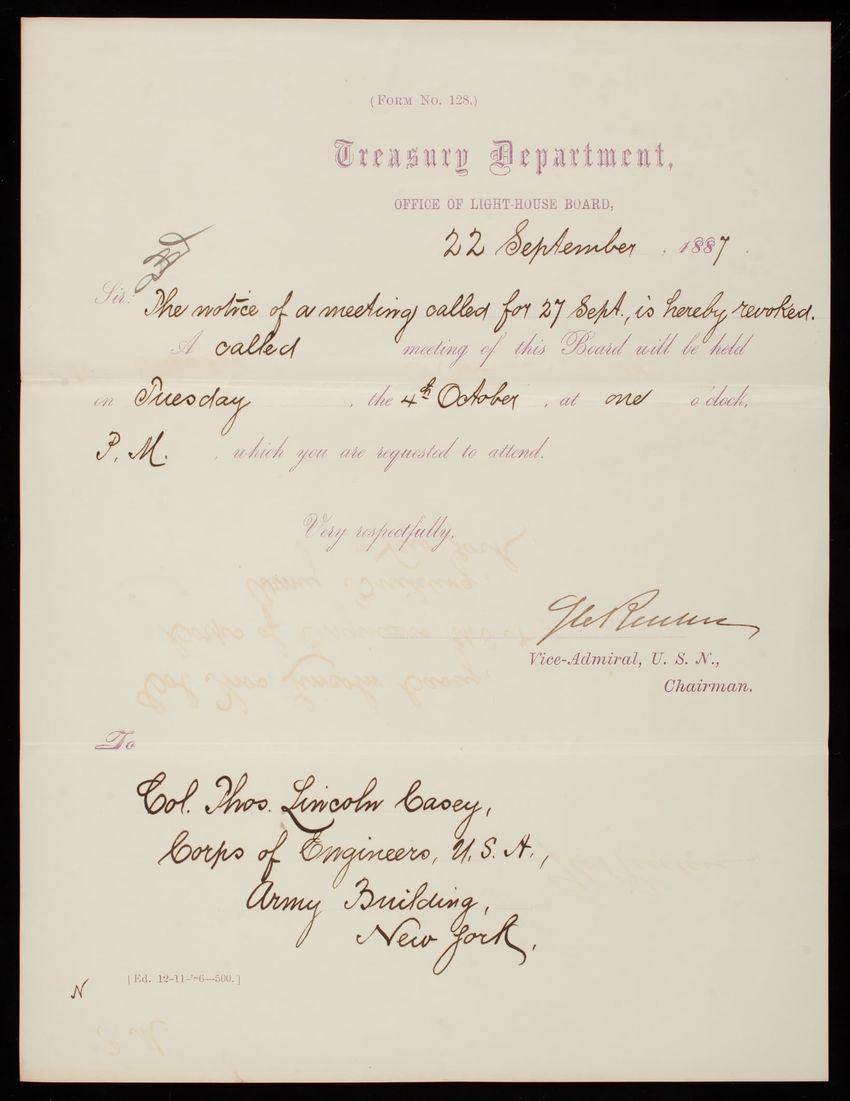 (FORM NO. 128.)
Treasury Department,
OFFICE OF LIGHT-HOUSE BOARD,
22 September, 1887.
Sir:
The notice of a meeting called for 27 Sept., is hereby revoked.
A called meeting of this Board will be held
on Tuesday, the 4th October, at one o'clock,
P. M., which you are requested to attend.
Very respectfully,
Vice-Admiral, U. S. N.,
Chairman.
To
Col. Thos. Lincoln Casey,
Corps of Engineers, U. S. A.,
Army Building,
New York,
[Ed. 12-11-'86—500.]
N